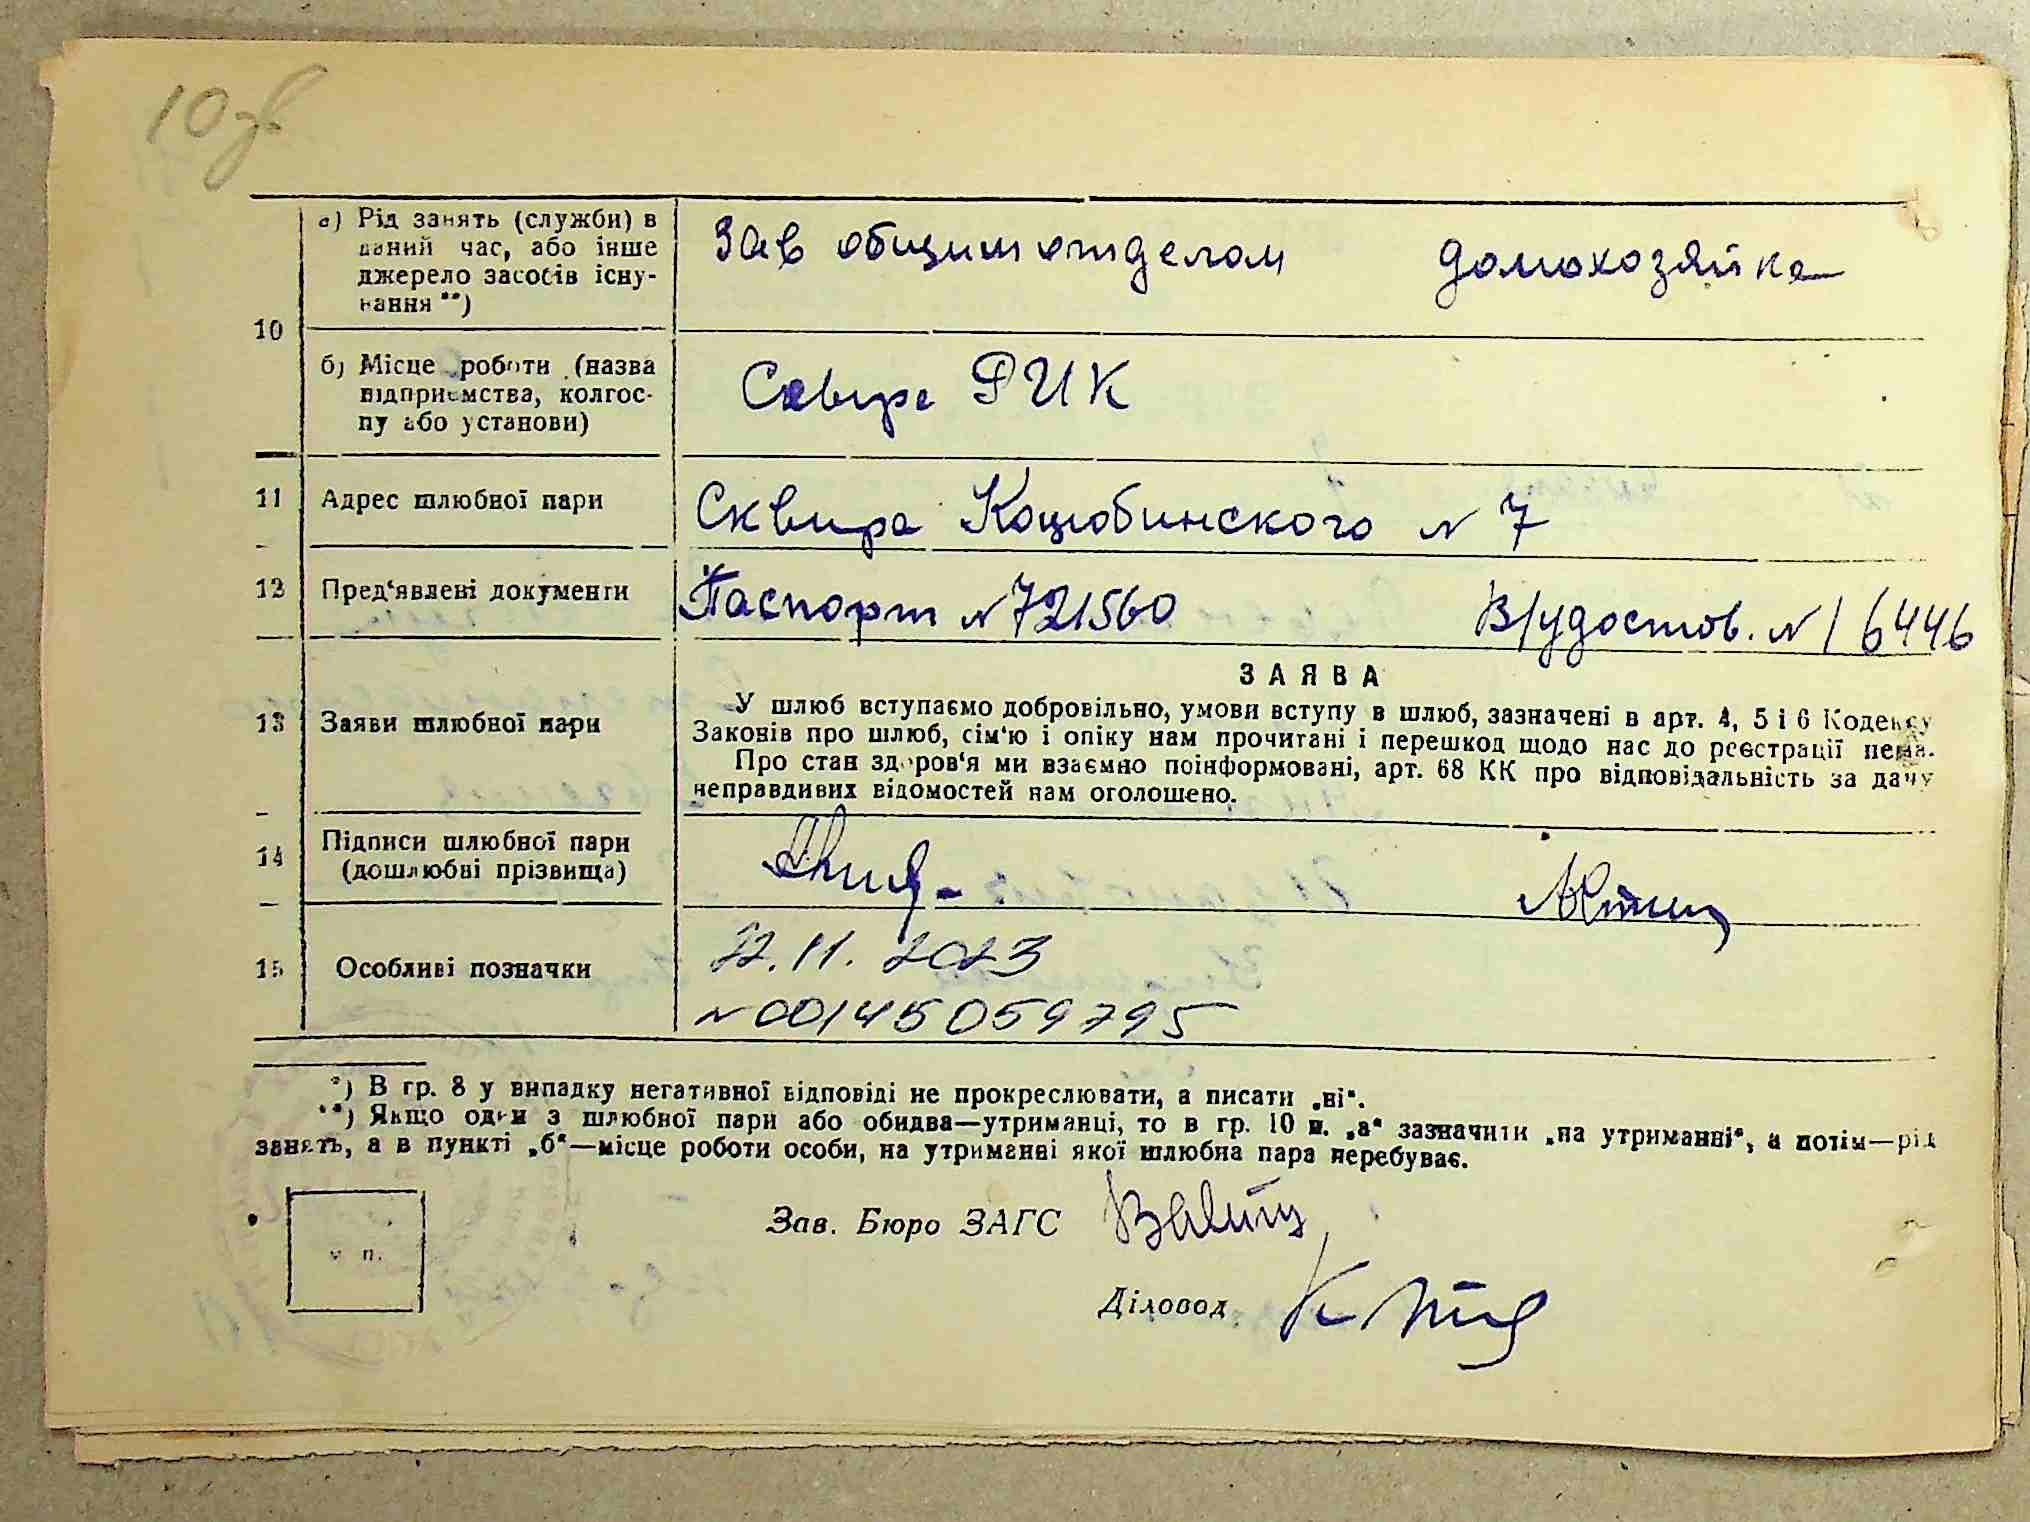 10 зв
а) Рід занять (служби) в
даний час, або інше
джерело засобів існу-
вання **)
Зав общим отделом домохозяйка
10
б) Місце роботи (назва
підприємства, колгос-
пу або установи)
Сквира РИК
11 Адрес шлюбної пари Сквира Коцюбинского № 7
12 Пред'явлені документи Паспорт № 721560 В/удостов. № 16446
ЗАЯВА
13 Заяви шлюбної пари
У шлюб вступаємо добровільно, умови вступу в шлюб, зазначені в арт. 4, 5 і 6 Кодексу
Законів про шлюб, сім'ю і опіку нам прочитані і перешкод щодо нас до реєстрації нема.
Про стан здоров'я ми взаємно поінформовані, арт. 68 КК про відповідальність за дачу
неправдивих відомостей нам оголошено.
14 Підписи шлюбної пари
(дошлюбні прізвища)
15 Особливі позначки
22.11.2023
№ 00145059795
*) В гр. 8 у випадку негативної відповіді не прокреслювати, а писати „ні“.
**) Якщо один з шлюбної пари або обидва—утриманці, то в гр. 10 п. „а“ зазначити „на утриманні“, а потім—рід
занять, а в пункті „б“—місце роботи особи, на утриманні якої шлюбна пара перебуває.
м п.
Зав. Бюро ЗАГС
Діловод